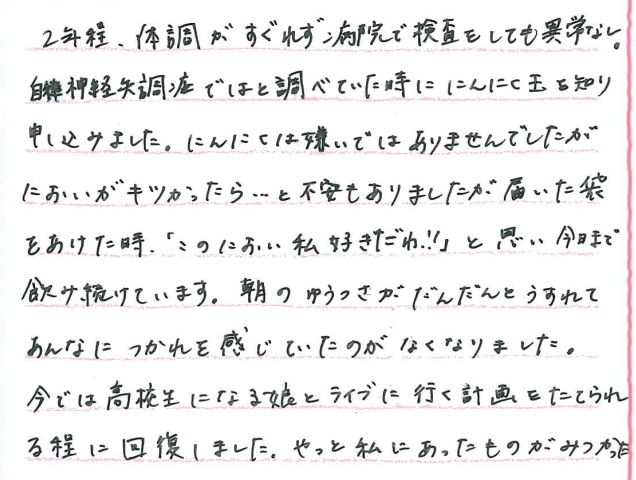 2年程、体調がすぐれず病院で検査をしても異常なし。
自律神経失調症ではと調べていた時ににんにく玉を知り
申し込みました。にんにくは嫌いではありませんでしたが
においがキツかったら…と不安もありましたが届いた袋
をあけた時、「このにおい私好きだわ!!」と思い今日まで
飲み続けています。朝のゆううつさがだんだんとうすれて
あんなにつかれを感じていたのがなくなりました。
今では高校生になる娘とライブに行く計画をたてられ
る程に回復しました。やっと私にあったものがみつかった